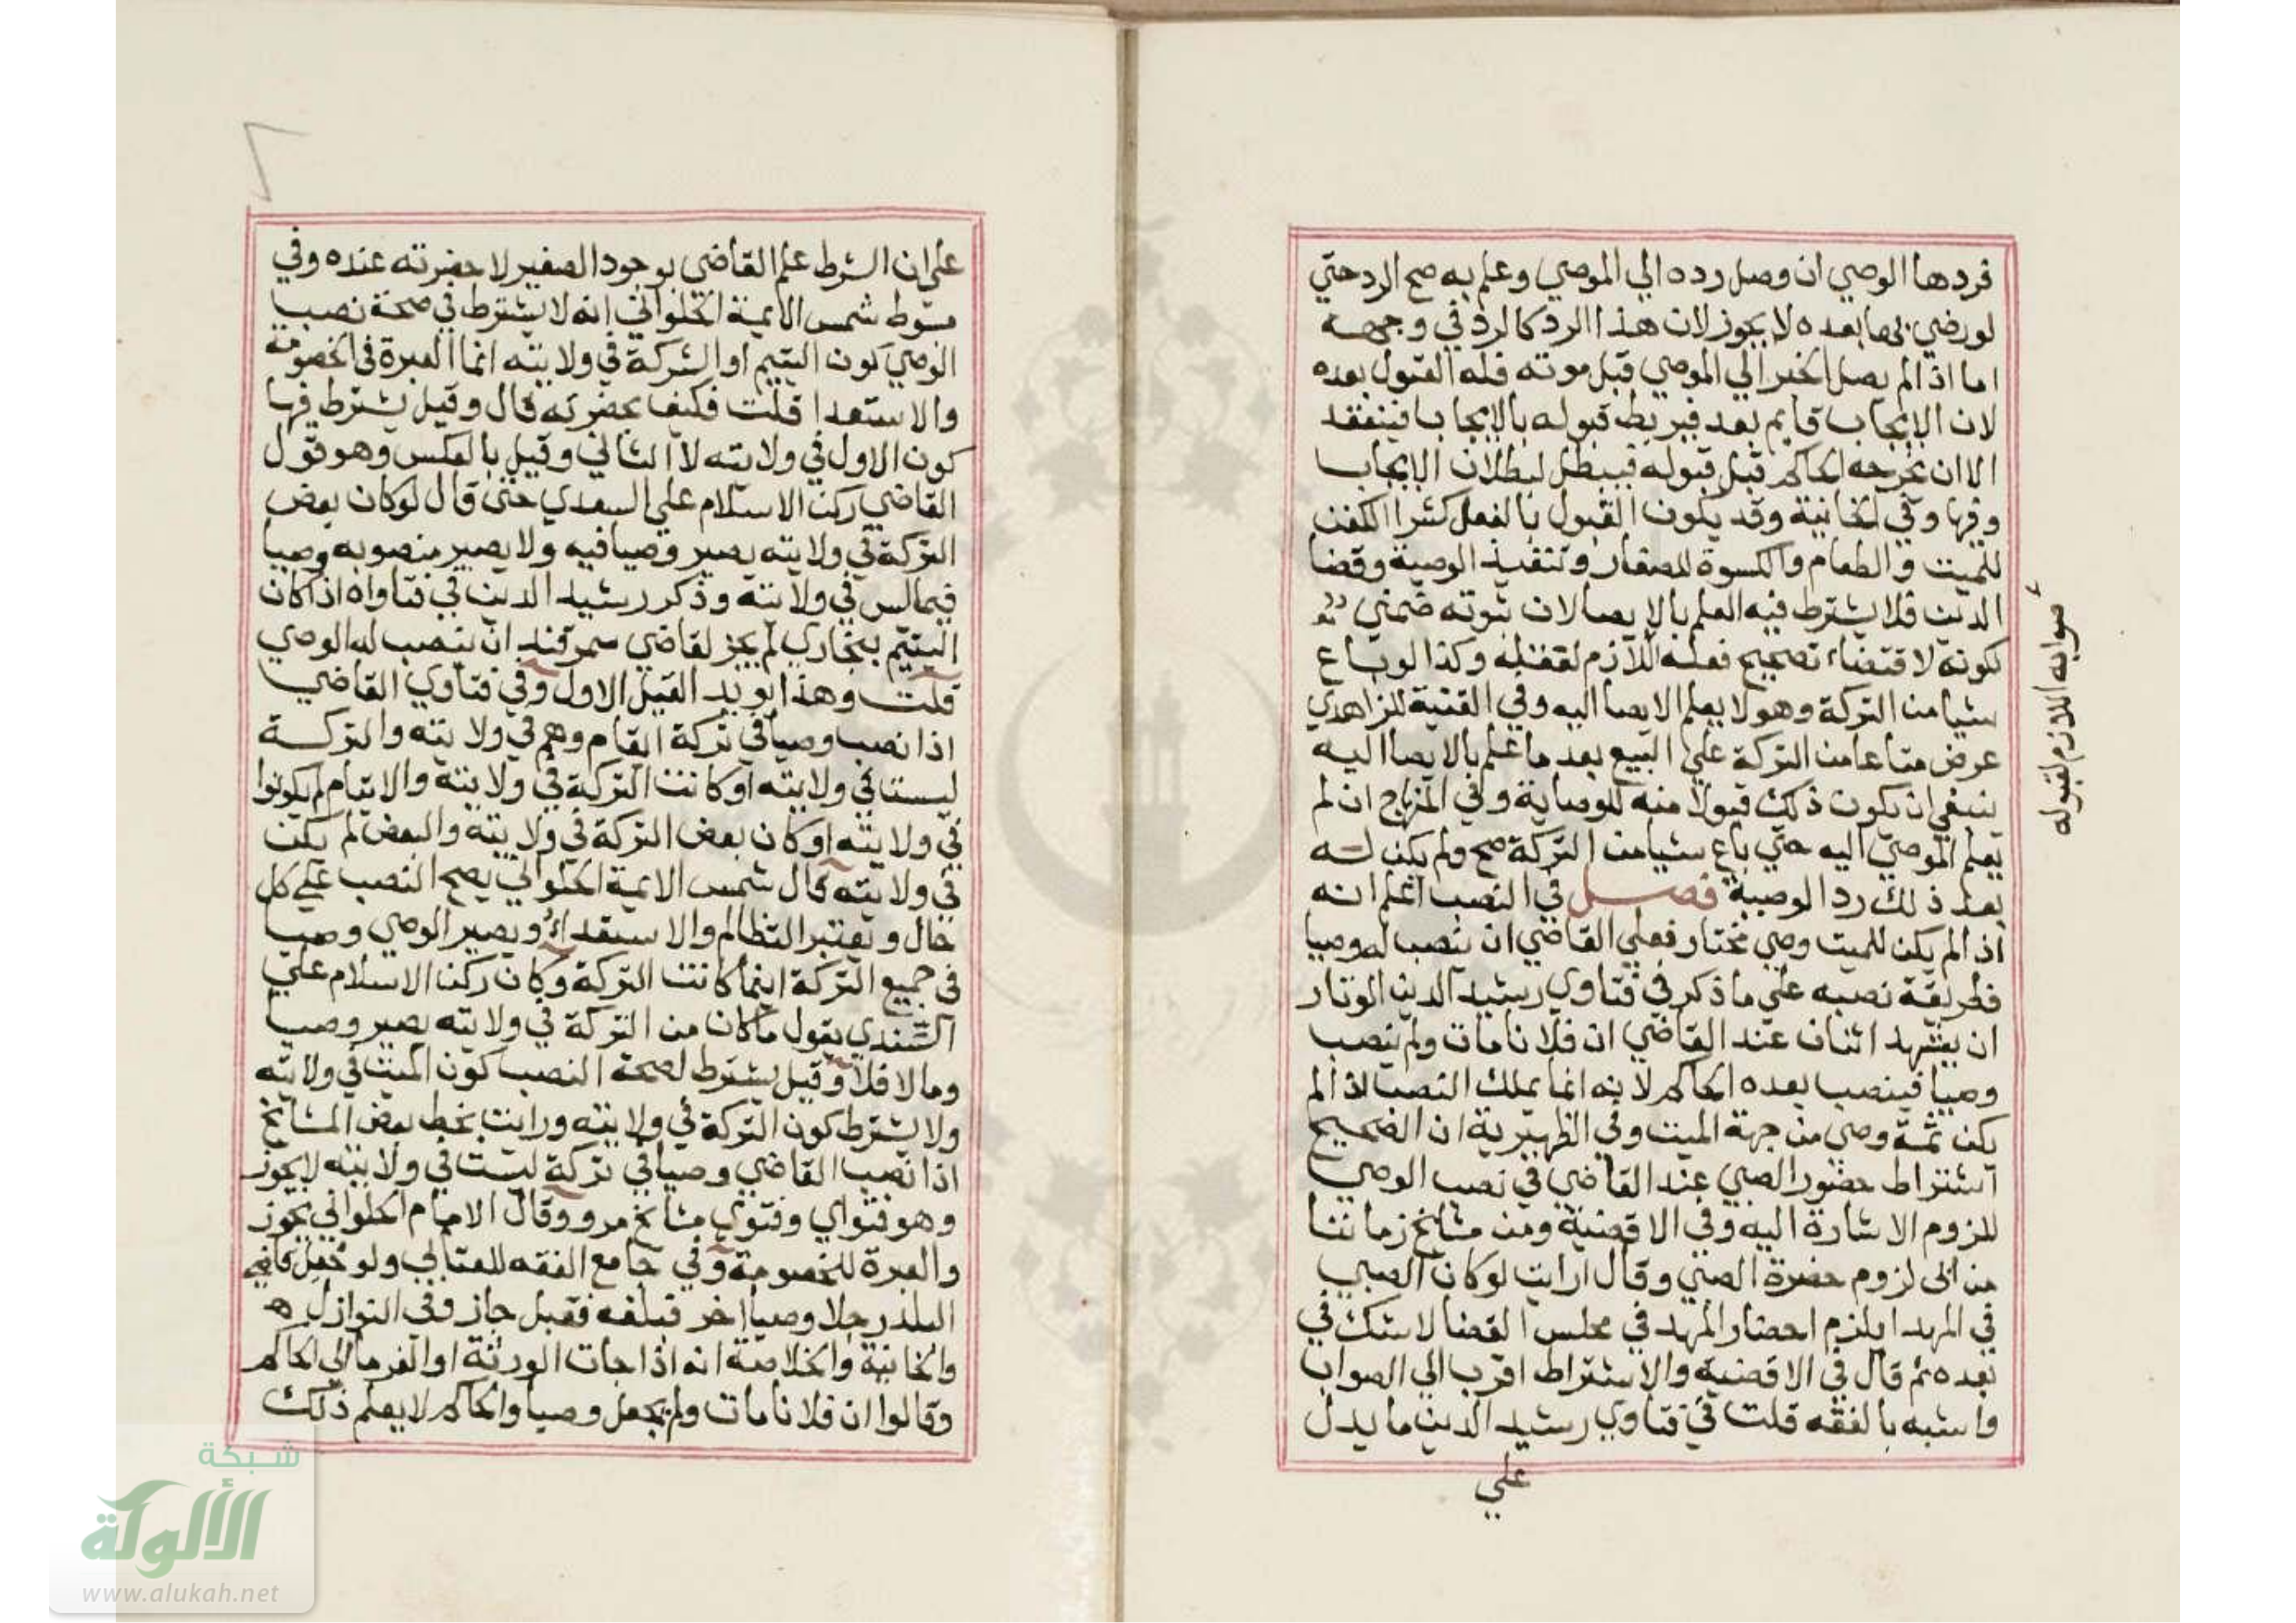 فردها الوصي ان وصل رده الي الموصي وعلم به صح الرد حتي
لو رضي بها بعده لا يجوز لان هذا الرد كالرد في وجهه
اما اذا لم يصل الخبر الي الموصي قبل موته فله القبول بعده
لان الايجاب قايم بعد فيربط قبوله بالايجاب فينعقد
الا ان يخرجه الحاكم قبل قبوله فيبطل لبطلان الايجاب
وفيها وفي الخانية وقد يكون القبول بالفعل كشرا الكفن
للميت والطعام والكسوة للصغار وتنفيذ الوصية وقضا
الدين فلا يشترط فيه العلم بالايصا لان ثبوته ضمني
لكونه لاقتضاء تصحيح فعله اللازم لقفله وكذا لو باع
شيا من التركة وهو لا يعلم الايصا اليه وفي القنية للزاهدي
عرض متاعا من التركة علي البيع بعد ما علم بالايصا اليه
ينبغي ان يكون ذلك قبولا منه للوصاية وفي المنهاج ان لم
يعلم الموصي اليه حتي باع شيا من التركة صح ولم يكن له
بعد ذلك رد الوصية فصل في النصب اعلم انه
اذا لم يكن للميت وصي مختار فعلي القاضي ان ينصب له وصيا
فطريقة نصبه علي ما ذكر في فتاوي رشيد الدين الوتار
ان يشهد اثنان عند القاضي ان فلانا مات ولم ينصب
وصيا فينصب بعده الحاكم لانه انما يملك النصب اذا لم
يكن ثمة وصي من جهة الميت وفي الظهيرية ان الصحيح
اشتراط حضور الصبي عند القاضي في نصب الوصي
للزوم الاشارة اليه وفي الاقضية ومن مشايخ زماننا
من ابي لزوم حضرة الصبي وقال ارايت لو كان الصبي
في المهد ايلزم احضار المهد في مجلس القضا لا شك في
بعده ثم قال في الاقضية والاشتراط اقرب الي الصواب
واشبه بالفقه قلت في فتاوي رشيد الدين ما يدل
علي
صوابه اللازم لقبوله
علي ان الشرط علم القاضي بوجود الصغير لا حضرته عنده وفي
مبسوط شمس الايمة الحلواني انه لا يشترط في صحة نصب
الوصي كون اليتيم او التركة في ولايته انما العبرة في الخصومة
والاستعدا قلت فكيف بحضرته قال وقيل يشترط فيها
كون الاول في ولايته لا الثاني وقيل بالعكس وهو قول
القاضي ركن الاسلام علي السعدي حتي قال لو كان بعض
التركة في ولايته يصير وصيا فيه ولا يصير منصوبه وصيا
فيما ليس في ولايته وذكر رشيد الدين في فتاواه اذا كان
اليتيم ببخاري لم يجز لقاضي سمرقند ان ينصب له الوصي
قلت وهذا يويد القيل الاول وفي فتاوي القاضي
اذا نصب وصيا في تركة ايتام وهم في ولايته والتركة
ليست في ولايته او كانت التركة في ولايته والايتام لم يكونوا
في ولايته او كان بعض التركة في ولايته والبعض لم يكن
في ولايته قال شمس الايمة الحلواني يصح النصب علي كل
حال ويعتبر التظالم والاستعداء ويصير الوصي وصيا
في جميع التركة اينما كانت التركة وكان ركن الاسلام علي
السغدي يقول ما كان من التركة في ولايته يصير وصيا
وما لا فلا وقيل يشترط لصحة النصب كون الميت في ولايته
ولا يشترط كون التركة في ولايته ورايت بخط بعض المشايخ
اذا نصب القاضي وصيا في تركة ليست في ولايته لا يجوز
وهو فتواي وفتوي مشايخ مرو وقال الامام الحلواني يجوز
والعبرة للخصومة وفي جامع الفقه للعتابي ولو جعل قاضي
البلد رجلا وصيا اخر فبلغه فقبل جاز وفي النوازل
والخانية والخلاصة انه اذا جات الورثة او الغرما الي الحاكم
وقالوا ان فلانا مات ولم يجعل وصيا والحاكم لا يعلم ذلك
شبكة
الألوكة
www.alukah.net